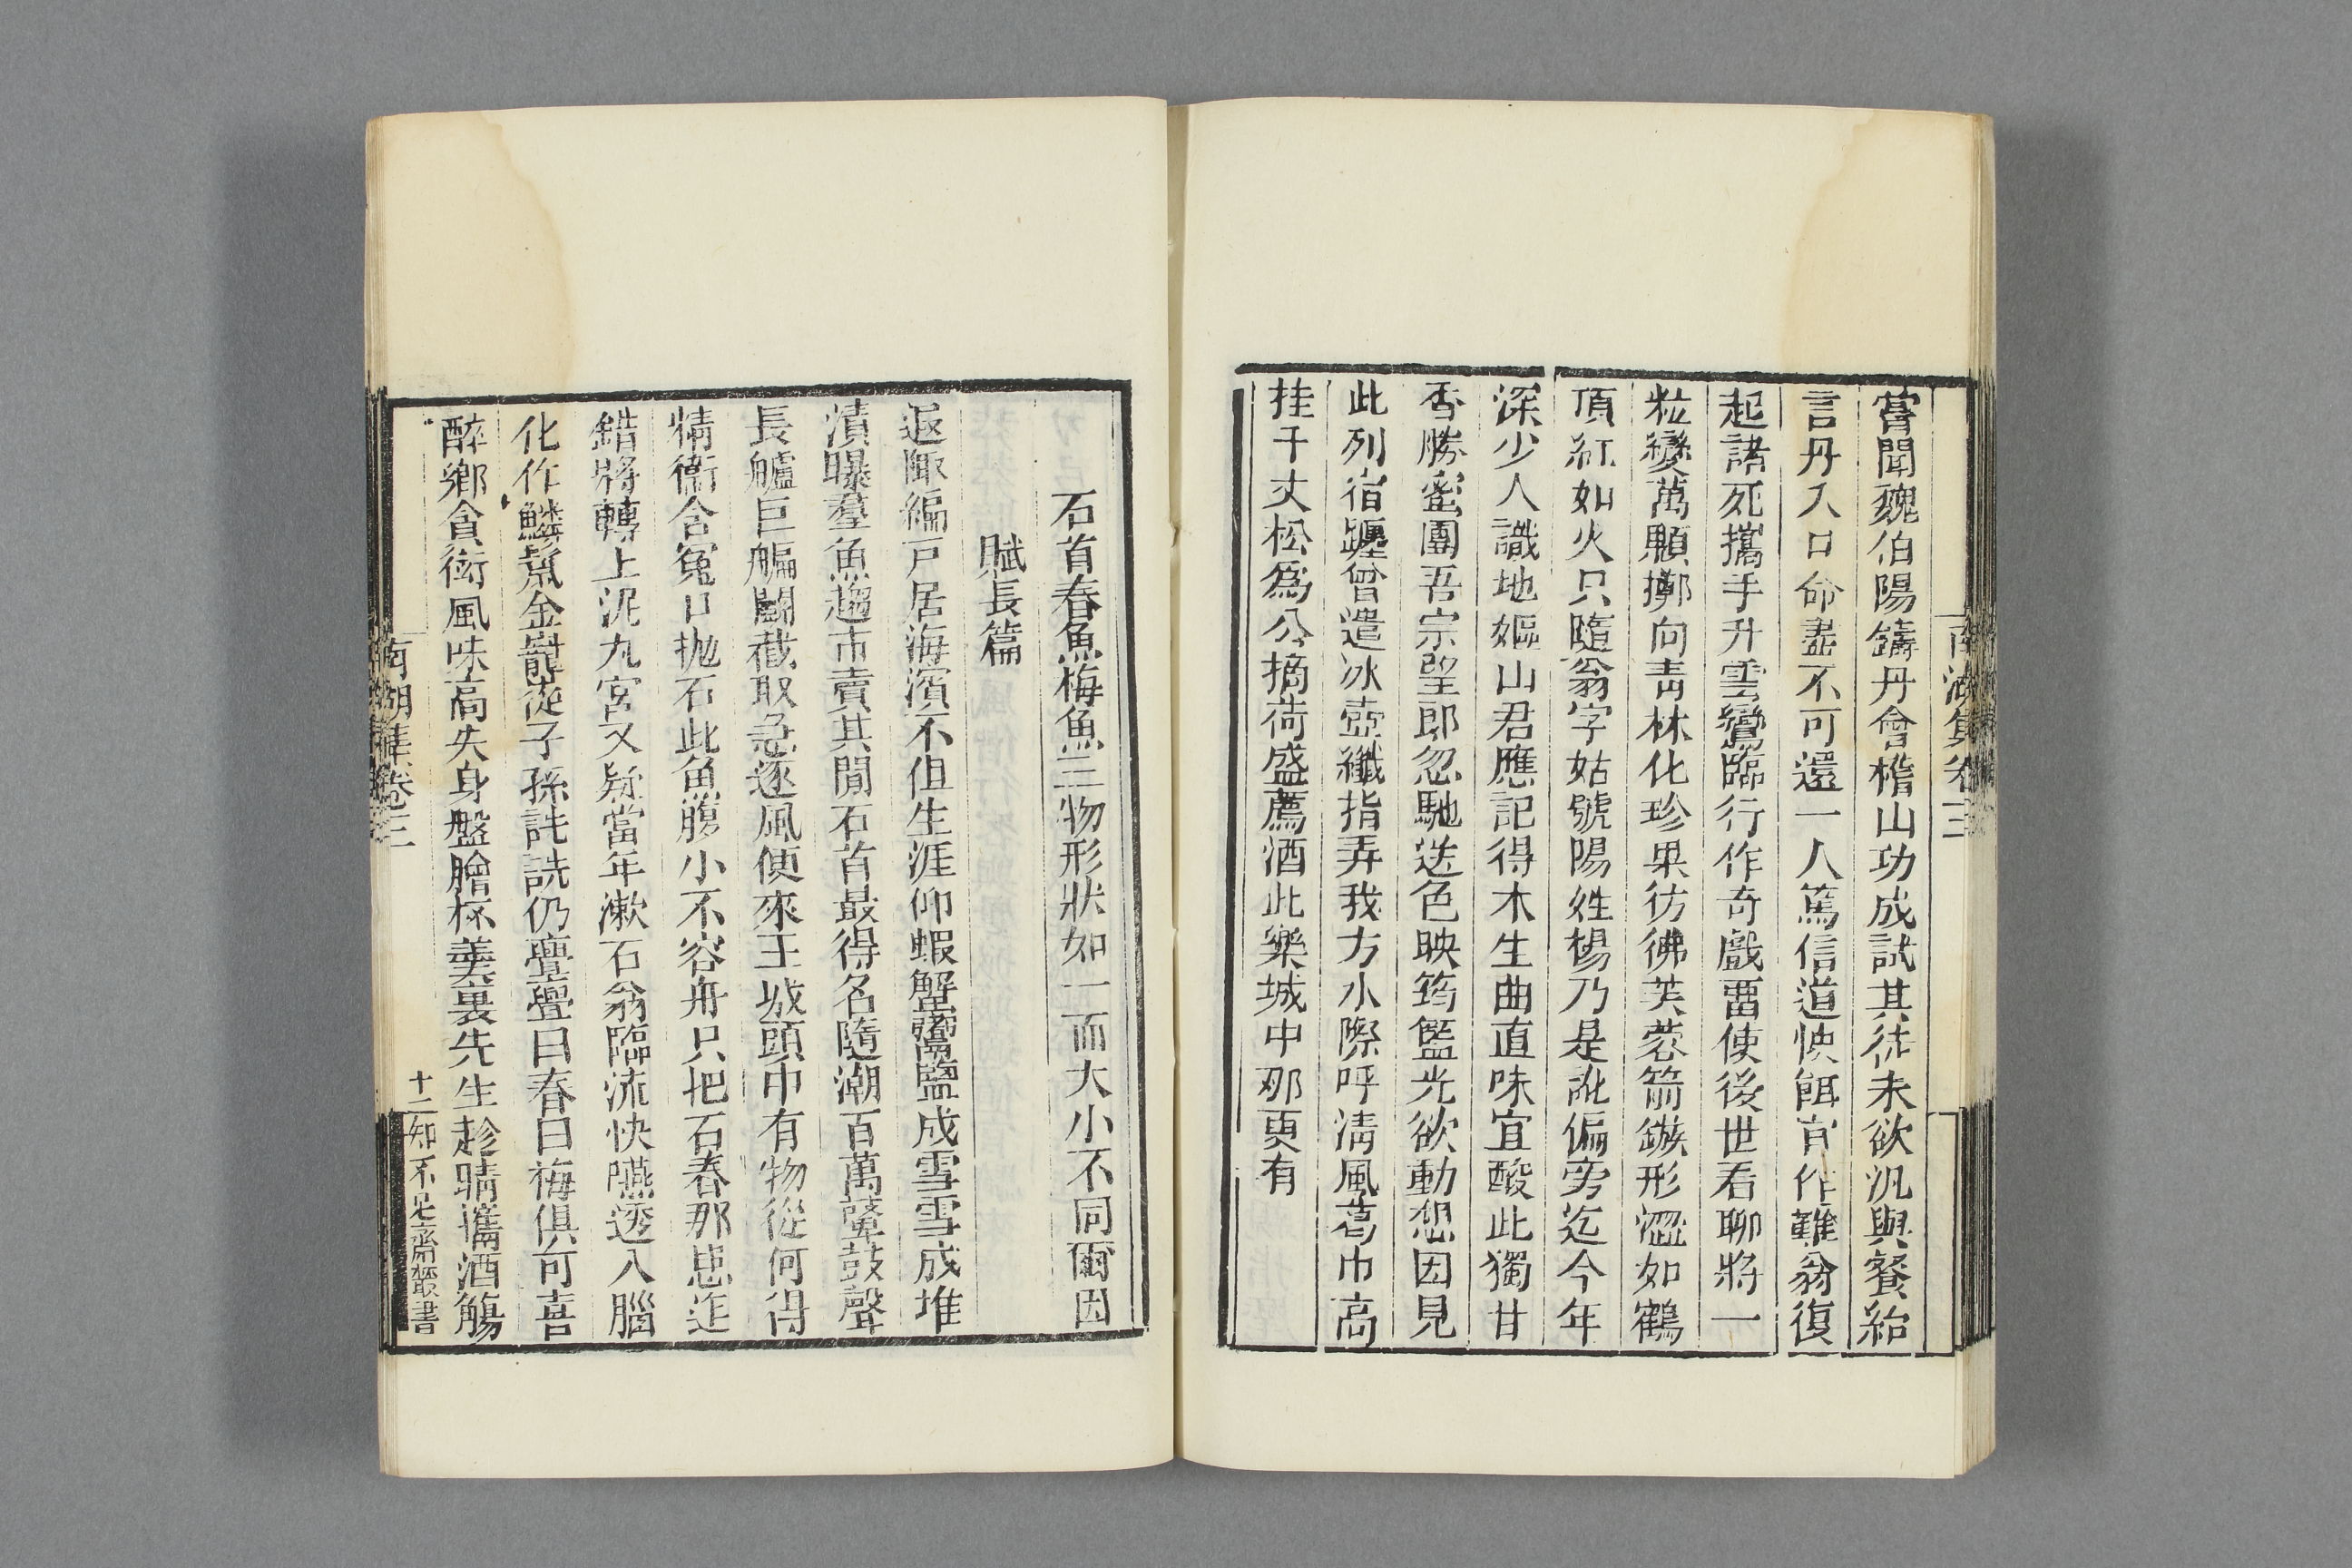 南湖集卷三
嘗聞魏伯陽鑄丹會稽山功成試其徒未欲汎與餐紿
言丹入口命盡不可還一人篤信道怏餌肎作難翁復
起諸死攜手升雲鸞臨行作奇戲畱使後世看聊將一
粒變萬顆擲向青林化珍果彷彿芙蓉箭鏃形澀如鶴
頂紅如火只隨翁字姑號陽姓楊乃是訛偏旁迄今年
深少人識地嫗山君應記得木生曲直味宜酸此獨甘
香勝蜜團吾宗聖郎忽馳送色映筠籃光欲動想因見
此列宿躔曾遣冰壺纖指弄我方水際呼淸風葛巾高
挂千丈松爲公摘荷盛薦酒此樂城中那更有
石首春魚梅魚三物形狀如一而大小不同爾因
賦長篇
遐陬編戸居海濱不但生涯仰蝦蟹鬻鹽成雪雪成堆
漬曝羣魚趨市賣其閒石首最得名隨潮百萬鼙鼓聲
長艫巨艑鬭截取急逐風便來王城頭巾有物從何得
精衞含冤口抛石此魚腹小不容舟只把石舂那患迮
錯將轉上泥丸宮又疑當年漱石翁臨流快嚥逆入腦
化作鱗鬣金巃嵸子孫詵詵仍亹亹曰春曰梅俱可喜
醉鄉貪衒風味高失身盤膾杯羹裏先生趁晴攜酒觴
南湖集卷三
十二
知不足齋叢書